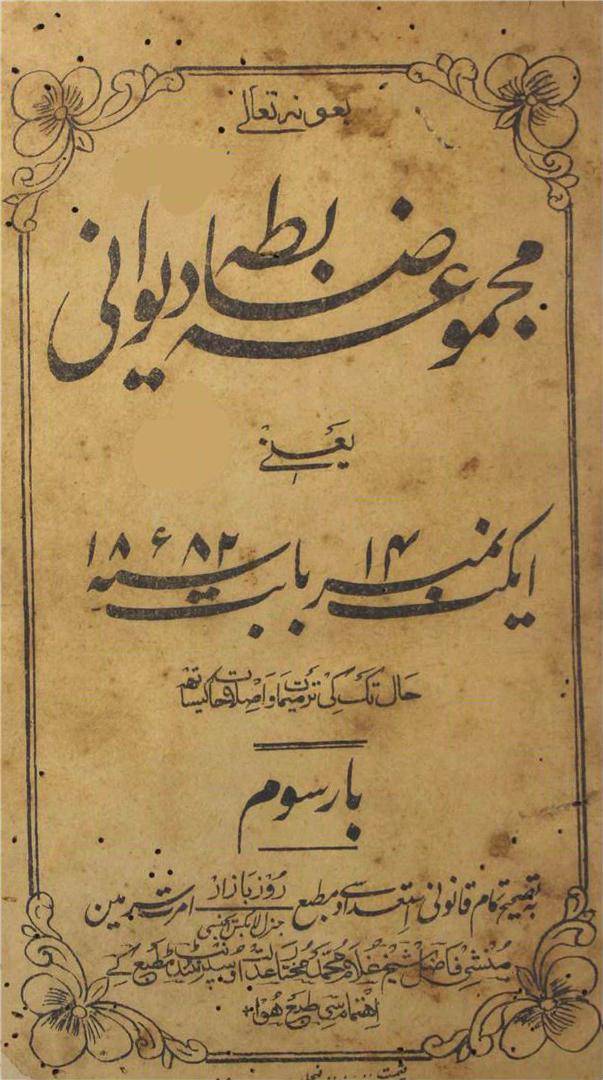 بعونہ تعالےٰ
مجموعہ ضابطہ دیوانی
یعنے
ایکٹ نمبر ۱۴ بابت سنہ ۱۸۸۲ء
حال تک کی ترمیمات و اصلاحات کیساتھ
بار سوم
بہ تصحیح تمام قانونی استعداد سے مطبع روز بازار امرتسر مین
جنرل لا بکس کمپنی
منشی فاضل شیخ غلام محمد مختار عدالت و سپرنٹنڈنٹ مطبع کے
اہتمام سے طبع ہوا